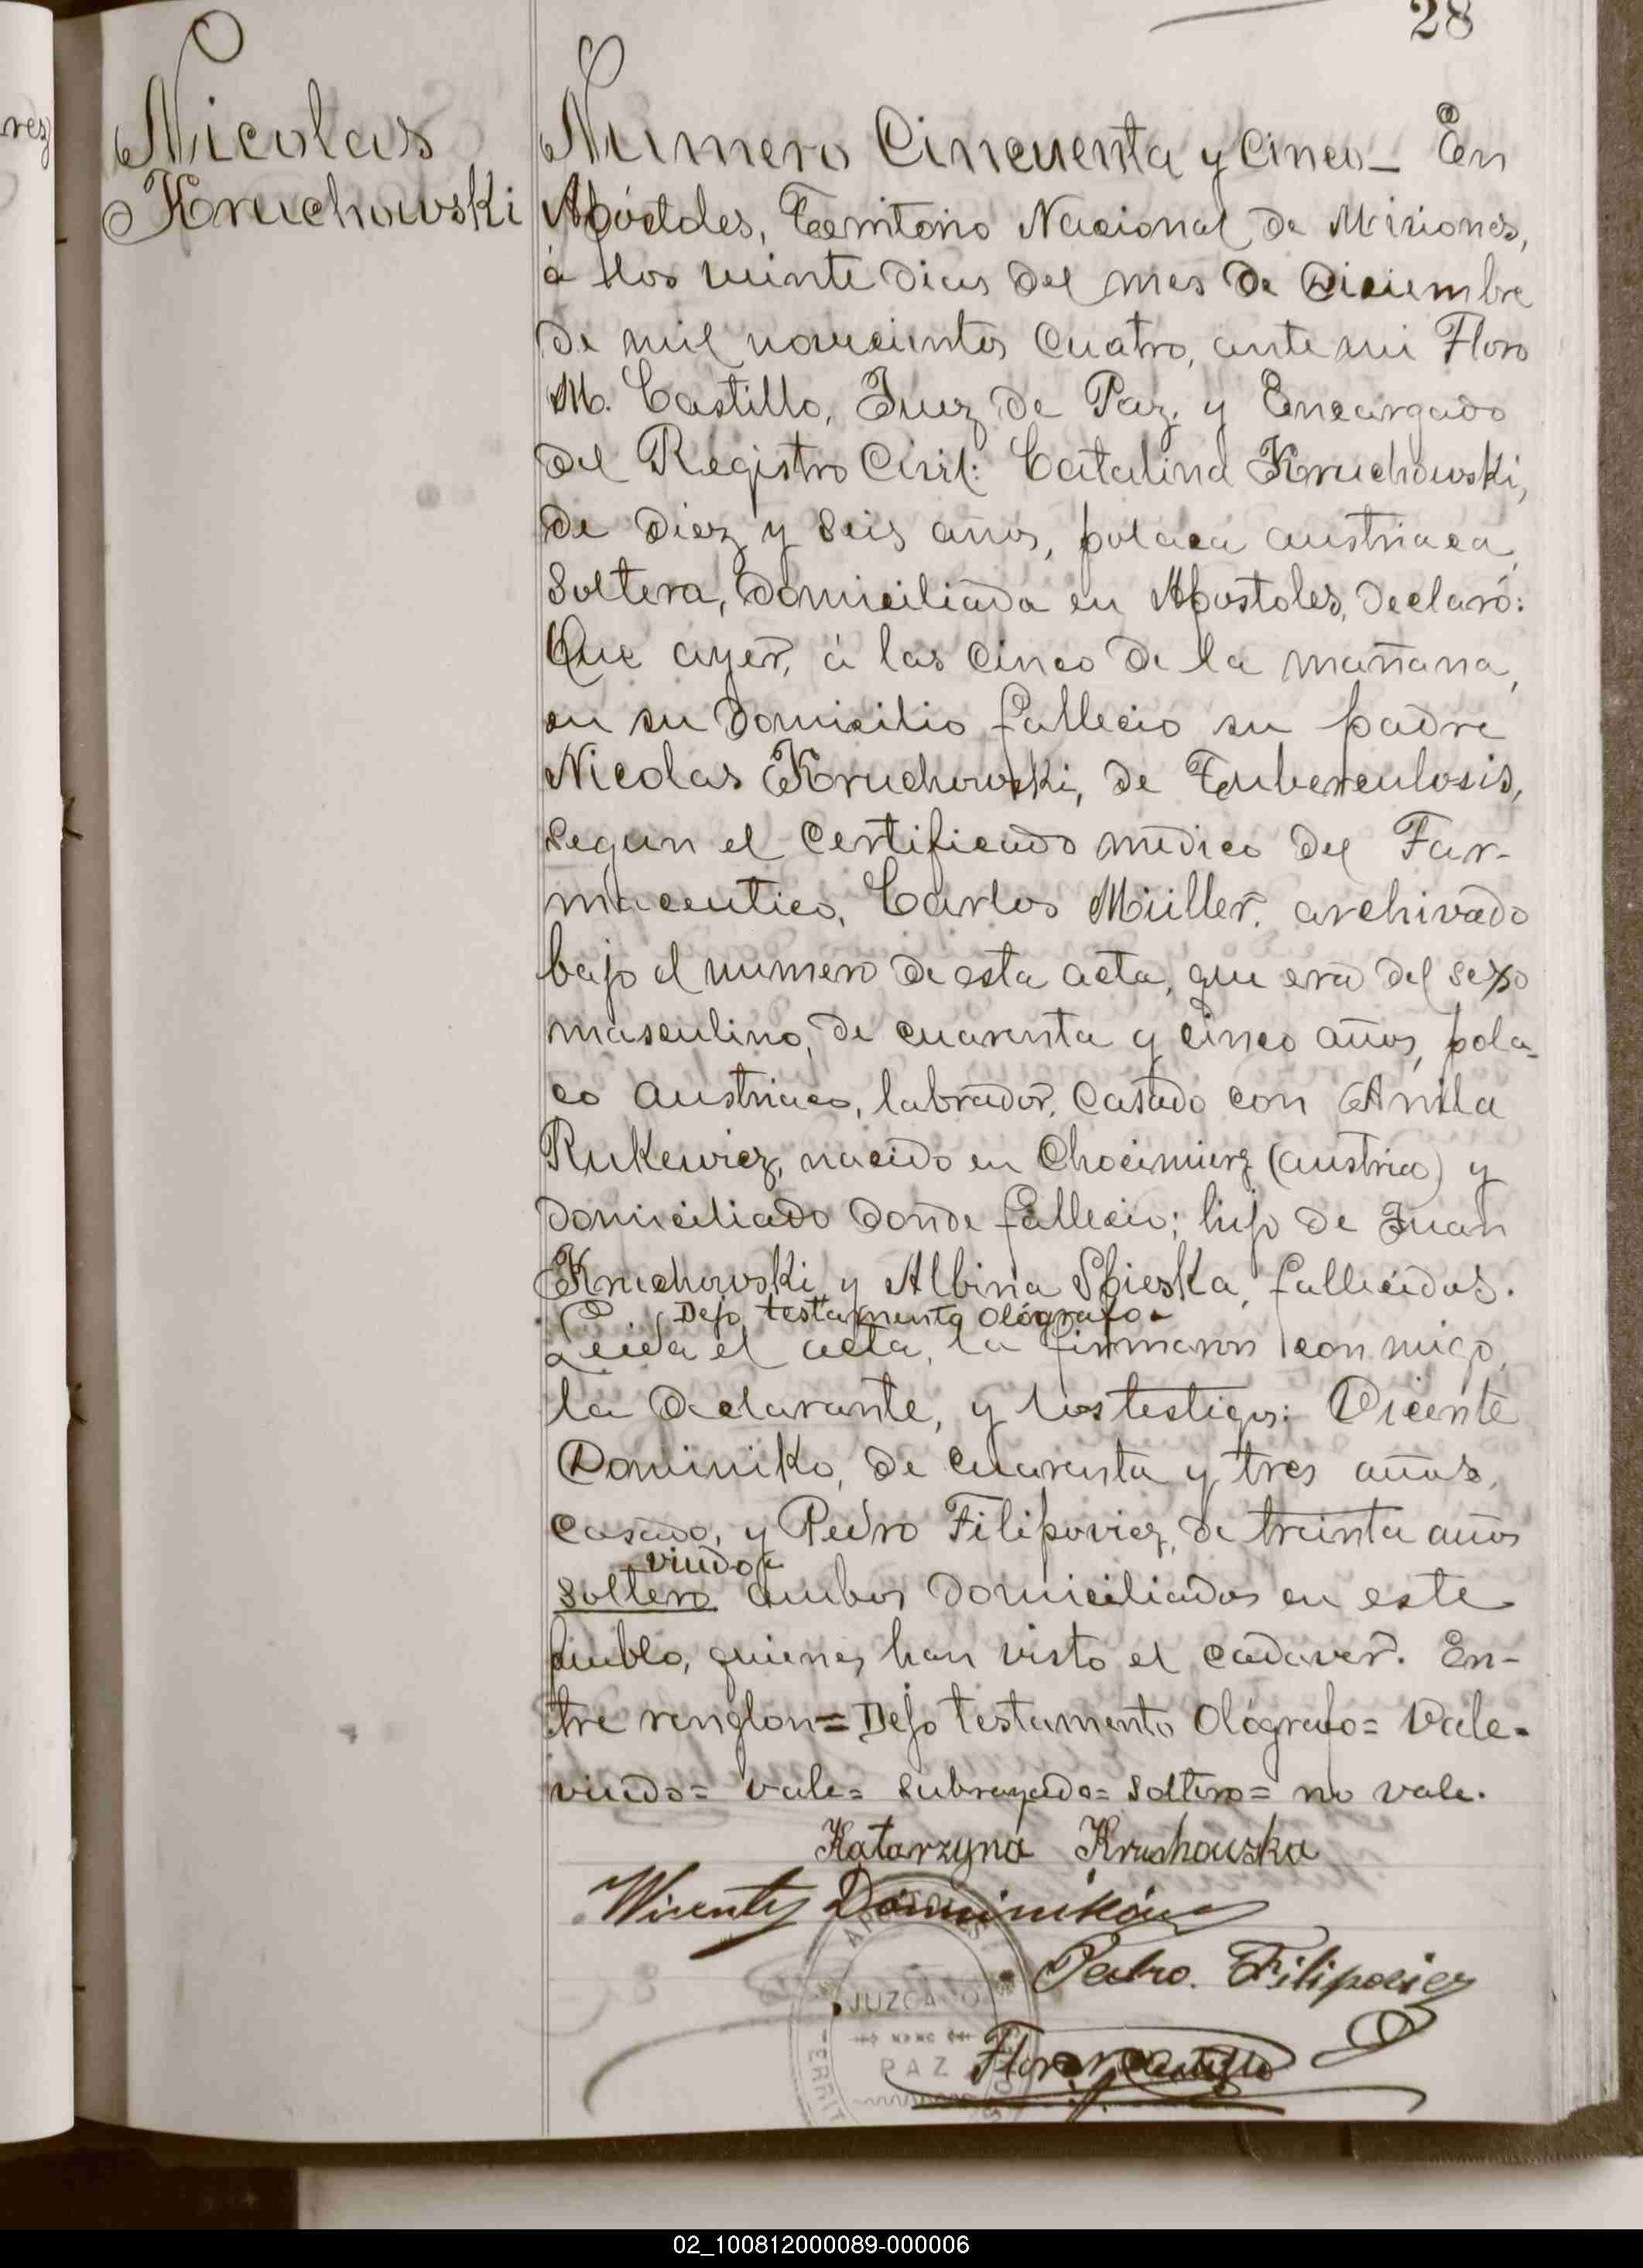 28
Nicolas
Kruchowski
Numero Cincuenta y Cinco_ En
Apóstoles, Territorio Nacional de Misiones,
á los veinte dias del mes de Diciembre
de mil novecientos cuatro, ante mi Floro
M. Castillo, Juez de Paz, y Encargado
del Registro Civil: Catalina Kruchowski,
de diez y seis años, polaca austriaca,
soltera, domiciliada en Apostoles, declaró:
Que ayer, á las cinco de la mañana,
en su domicilio fallecio su padre
Nicolas Kruchowski, de Tuberculosis,
segun el certificado medico del Far-
maceutico, Carlos Müller, archivado
bajo el numero de esta acta, que era del sexo
masculino, de cuarenta y cinco años, pola-
co austriaco, labrador, casado con Anila
Rukewicz, nacido en Chocimierz (austria) y
domiciliado donde fallecio; hijo de Juan
Kruchowski y Albina Spieska, fallecidos.
Dejo testamento Ológrafo
Leida el acta, la firmaron con migo,
la declarante, y los testigos: Vicente
Dominiko, de cuarenta y tres años,
casado, y Pedro Filipovicz, de treinta años
viudo
soltero ambos domiciliados en este
pueblo, quienes han visto el cadaver. En-
tre renglon= Dejo testamento Ológrafo= Vale=
viudo= vale= subrayado= soltero= no vale.
Katarzyna Kruchowska
Wicenty Dominików
Pedro. Filipovicz
Floro M Castillo
JUZGADO
PAZ
TERRIT
02_100812000089-000006